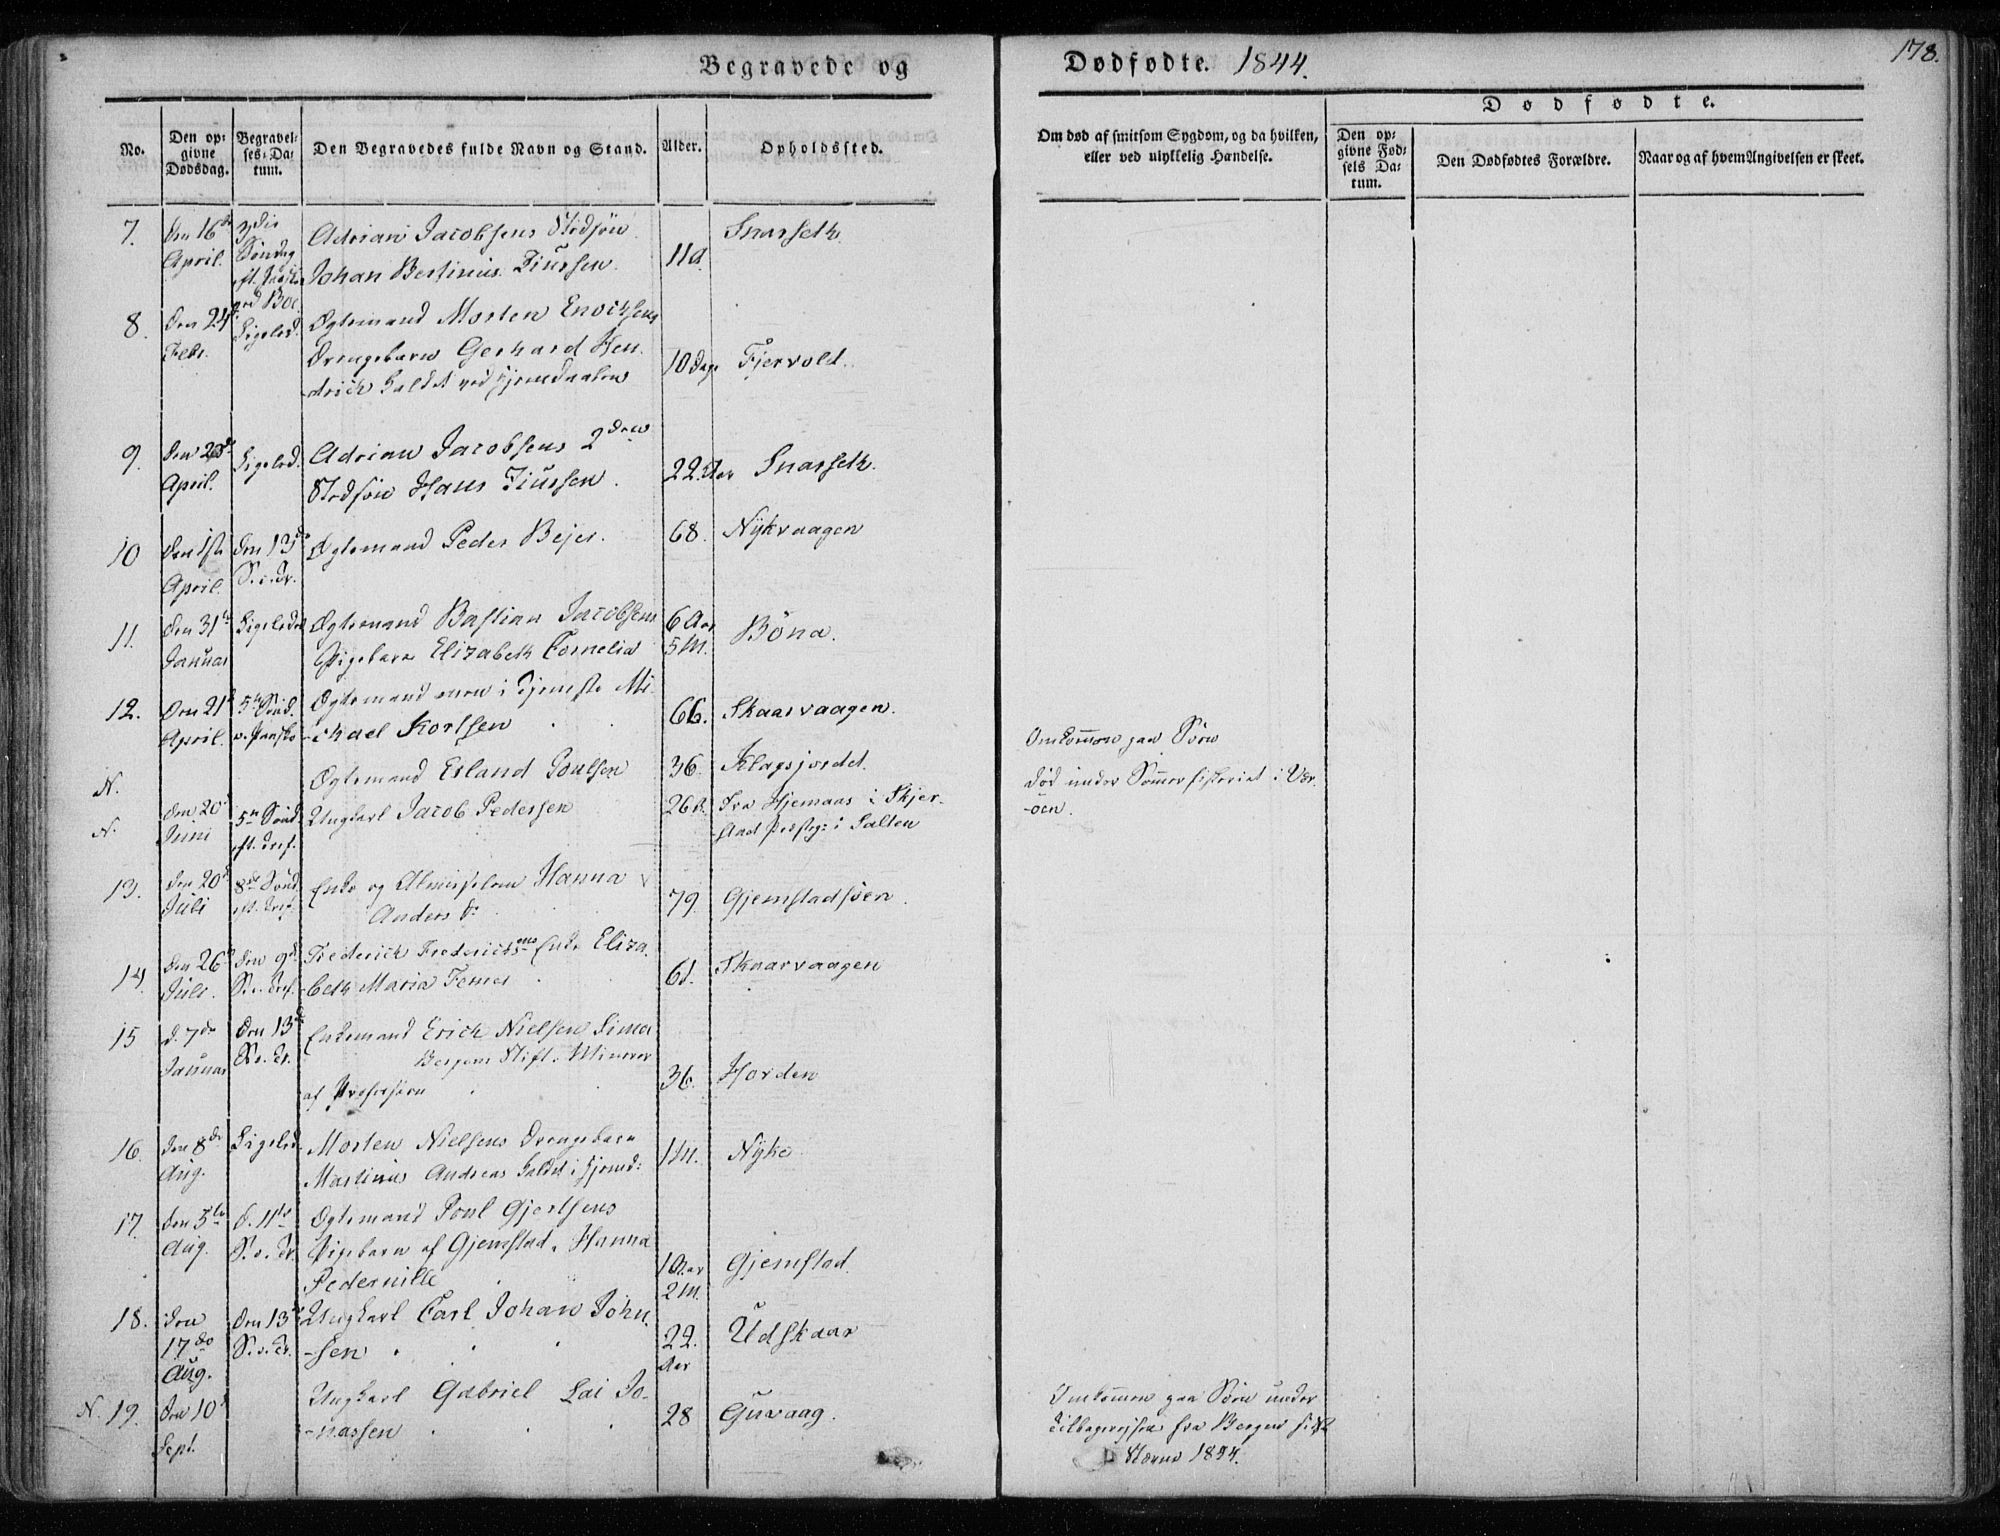 178.
Begravede og Dødfødte. 1844.
No.
Den opgivne Dødsdag.
Begravelses-Datum.
Den Begravedes fulde Navn og Stand.
Alder.
Opholdssted.
Om død af smitsom Sygdom, og da hvilken, eller ved ulykkelig Hændelse.
Dødfødte.
Den opgivne Fødsels Datum.
Den Dødfødtes Forældre.
Naar og af hvem Angivelsen er skeet.
7. den 16de April. 3die Søndag
Adrian Jacobsens Stedsøn
Johan Bertinus Siursen. 11 Snarseth
8. den 24 Febr. Ligeled.
Ogtemand Morten Enochsens
Drengebarn Gerhard Hen-
drick 10 Dage Fjervold.
9. den April. Ligeled.
Adrian Jacobsens 2den
Stedsøn Hans Siursen. 22 Aar Snarseth.
10 den 1ste April. den 13de S. e. Tr.
Ogtemand Peder Bejer. 68. Nykvaagen
11. den 31te Januar Ligeledes
Ogtemand Bastian Jacobsens
Pigebarn Elizabeth Cornelia 6 Aar 5 M. Böna.
12. den 21de April. 5te Sönd. e. Paaske
Ogtemand Mi-
chael Kortsen 66. Skaarvaagen.
N. Ogtemand Erland Poulsen 36. Klagsjordet.
Omkommen paa Söen
N. den 20de Juni 5te Sönd. eft. Tref.
Ungkarl Jacob Pedersen 26 Fra Hjemaas i Skjer-
stad i Salten
död under Sommerfiskeriet i Vær-
öen.
13. den 20de Juli 8de Sönd. eft. Tref.
Enke og Almisselem Hanna
Anders d. 79. Gjemstadsöen
14. den 26de Juli. den 9de S. e. Tref.
Frederick Fredericksens Enke Eliza-
beth Maria 61. Skaarvaagen
15 d. 7de Januar den 13de S. e. Tr.
Enkemand Erich Nielsen
Bergens Stift.
af 36. Horden
16. den 8de Aug. Ligeled.
Morten Nielsens Drengebarn
Martinus Andreas 1 M. Nyke
17. den 5te Aug. d. 11te S. e. Tr.
Ogtemand Poul Gjertsens
Pigebarn af Gjemstad, Hanna
Pedernille 1 Aar 2 M. Gjemstad.
18. den 17de Aug. den 13de S. e. Tr.
Ungkarl Carl Johan John-
sen 22. Aar Udskaar
N. 19. den 10de Sept.
Ungkarl Gabriel Lai Jo-
nassen 28 Guvaag.
Omkommen paa Söen under
Tilbagereisen fra Bergen sidste
Stævne 1844.